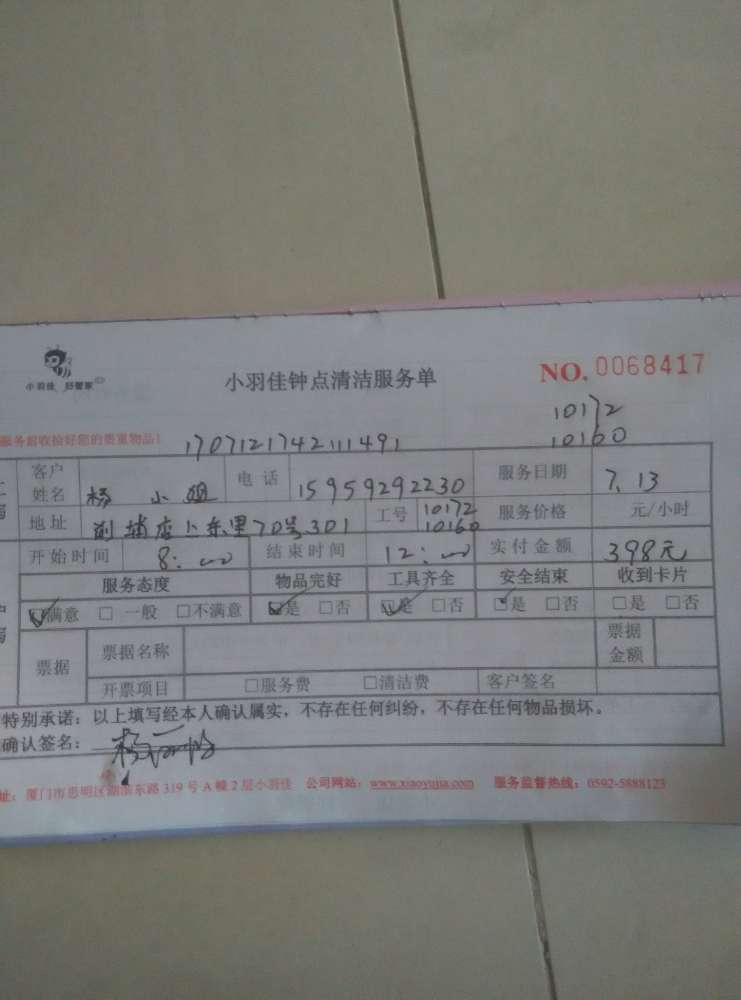 小羽佳 好管家
小羽佳钟点清洁服务单
NO. 0068417
10172
10160
服务前收拾好您的贵重物品!
1707121742111491
客户姓名 杨小姐 电话 15959292230 服务日期 7.13
地址 东里70号301 工号 10172 10160 服务价格 元/小时
开始时间 8:00 结束时间 12:00 实付金额 398元
服务态度 物品完好 工具齐全 安全结束 收到卡片
☑满意 □一般 □不满意 ☑是 □否 ☑是 □否 ☑是 □否 □是 □否
票据 票据名称 票据金额
开票项目 □服务费 □清洁费 客户签名
特别承诺：以上填写经本人确认属实，不存在任何纠纷，不存在任何物品损坏。
确认签名： 杨
址：厦门市思明区湖滨东路 319 号 A 幢 2 层小羽佳 公司网站：www.xiaoyujia.com 服务监督热线：0592-5888123